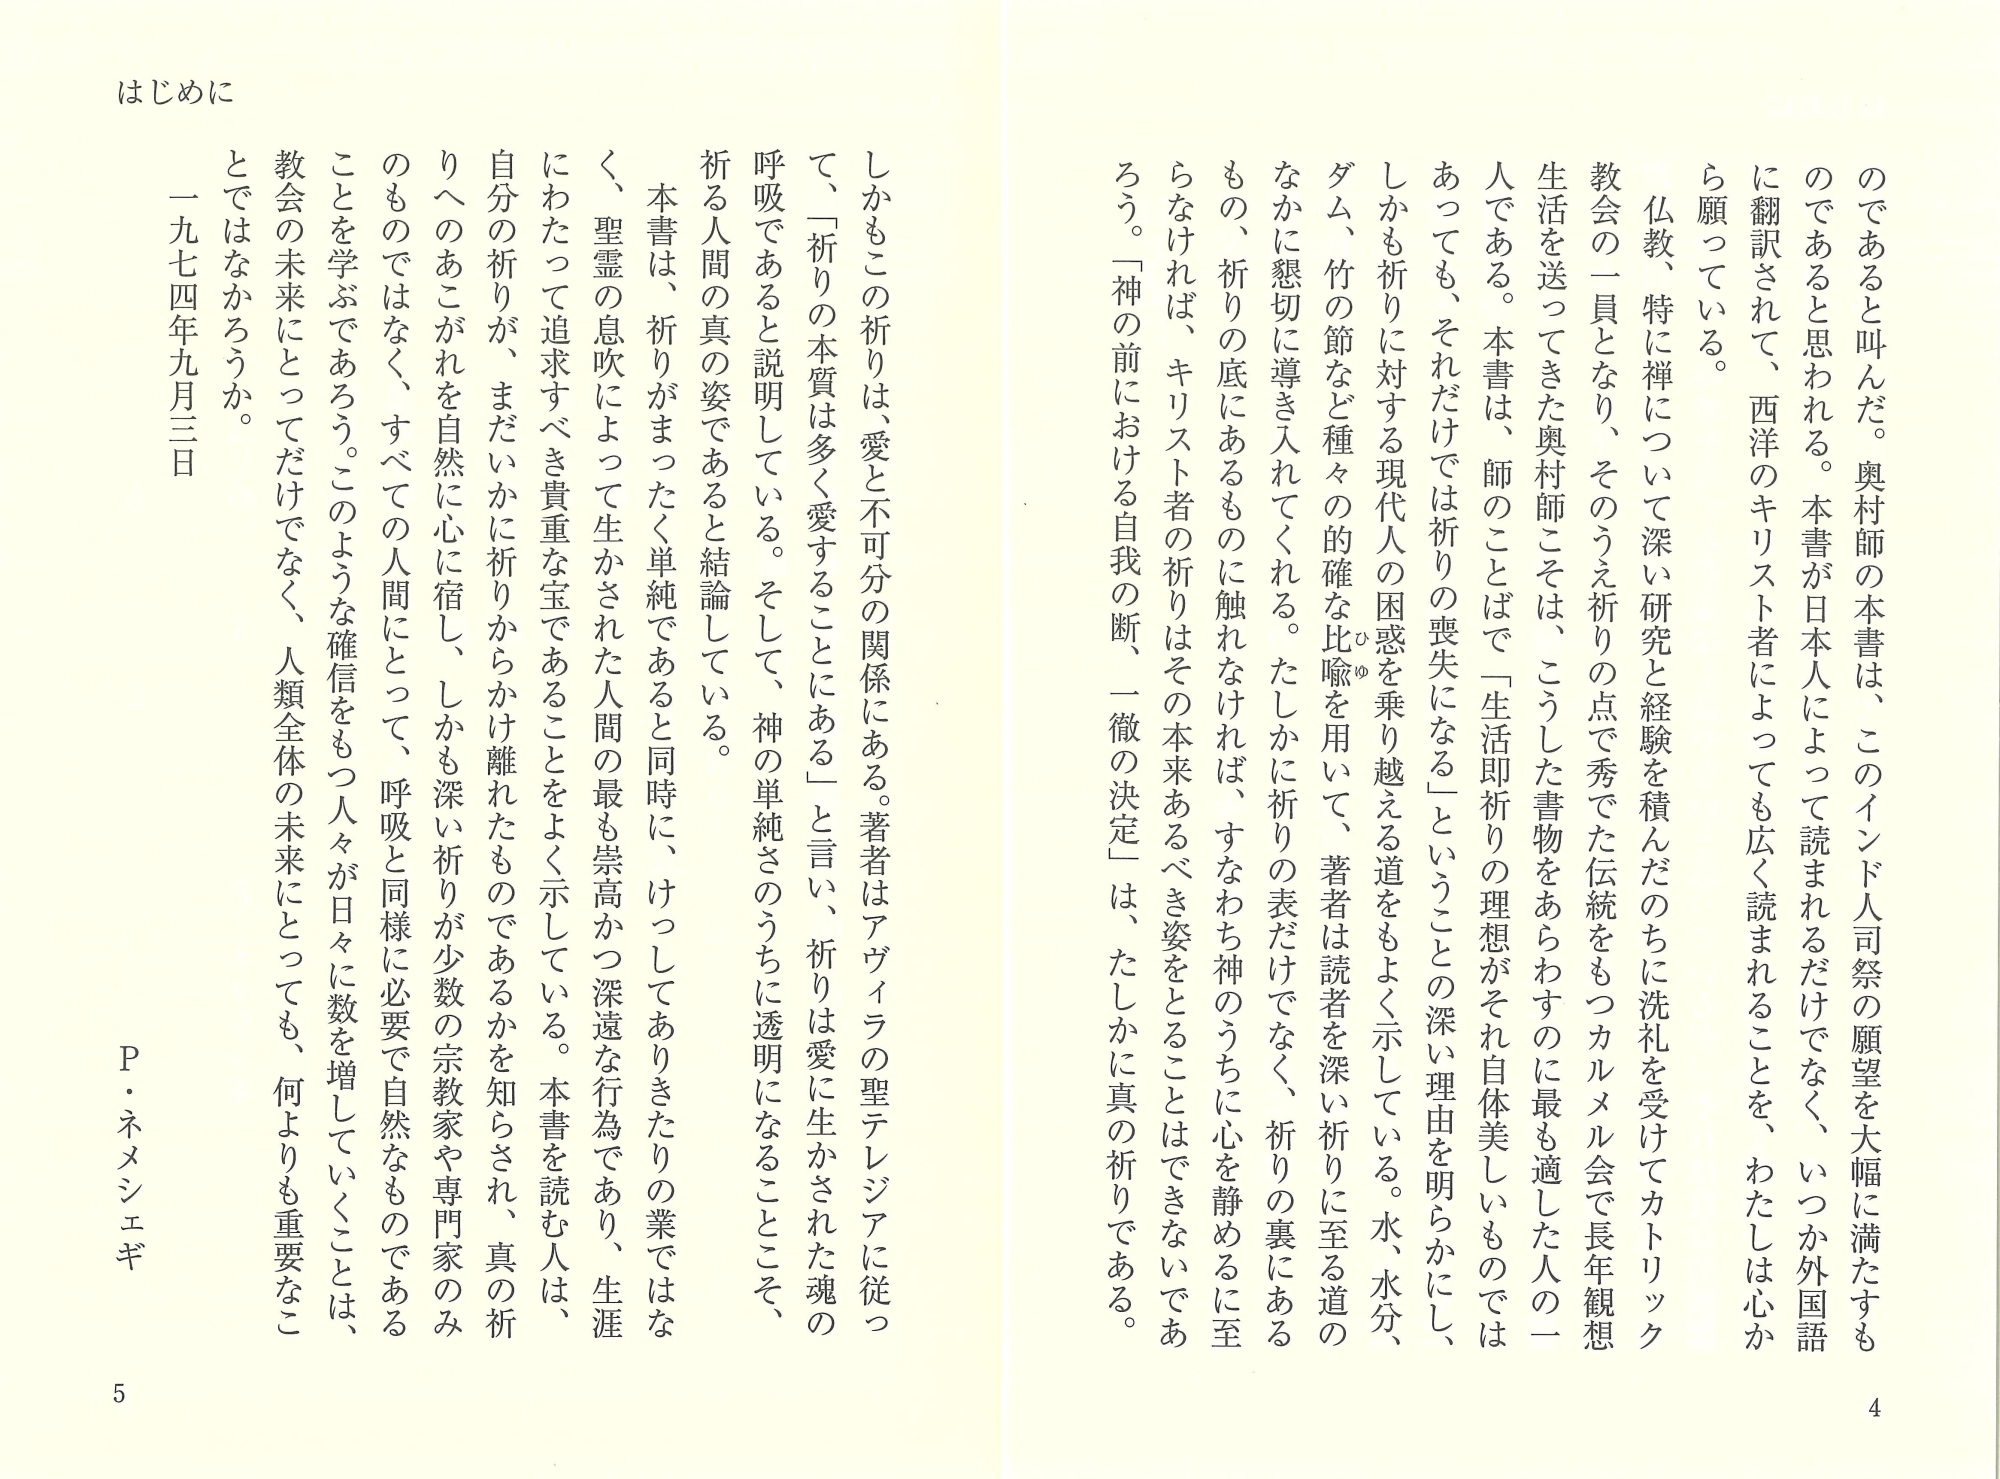 のであると叫んだ。奥村師の本書は、このインド人司祭の願望を大幅に満たすも
のであると思われる。本書が日本人によって読まれるだけでなく、いつか外国語
に翻訳されて、西洋のキリスト者によっても広く読まれることを、わたしは心か
ら願っている。
仏教、特に禅について深い研究と経験を積んだのちに洗礼を受けてカトリック
教会の一員となり、そのうえ祈りの点で秀でた伝統をもつカルメル会で長年観想
生活を送ってきた奥村師こそは、こうした書物をあらわすのに最も適した人の一
人である。本書は、師のことばで「生活即祈りの理想がそれ自体美しいものでは
あっても、それだけでは祈りの喪失になる」ということの深い理由を明らかにし、
しかも祈りに対する現代人の困惑を乗り越える道をもよく示している。水、水分、
ダム、竹の節など種々の的確な比喩ひゆを用いて、著者は読者を深い祈りに至る道の
なかに懇切に導き入れてくれる。たしかに祈りの表だけでなく、祈りの裏にある
もの、祈りの底にあるものに触れなければ、すなわち神のうちに心を静めるに至
らなければ、キリスト者の祈りはその本来あるべき姿をとることはできないであ
ろう。「神の前における自我の断、一徹の決定」は、たしかに真の祈りである。
4
はじめに
しかもこの祈りは、愛と不可分の関係にある。著者はアヴィラの聖テレジアに従っ
て、「祈りの本質は多く愛することにある」と言い、祈りは愛に生かされた魂の
呼吸であると説明している。そして、神の単純さのうちに透明になることこそ、
祈る人間の真の姿であると結論している。
本書は、祈りがまったく単純であると同時に、けっしてありきたりの業ではな
く、聖霊の息吹によって生かされた人間の最も崇高かつ深遠な行為であり、生涯
にわたって追求すべき貴重な宝であることをよく示している。本書を読む人は、
自分の祈りが、まだいかに祈りからかけ離れたものであるかを知らされ、真の祈
りへのあこがれを自然に心に宿し、しかも深い祈りが少数の宗教家や専門家のみ
のものではなく、すべての人間にとって、呼吸と同様に必要で自然なものである
ことを学ぶであろう。このような確信をもつ人々が日々に数を増していくことは、
教会の未来にとってだけでなく、人類全体の未来にとっても、何よりも重要なこ
とではなかろうか。
一九七四年九月三日
P・ネメシェギ
5